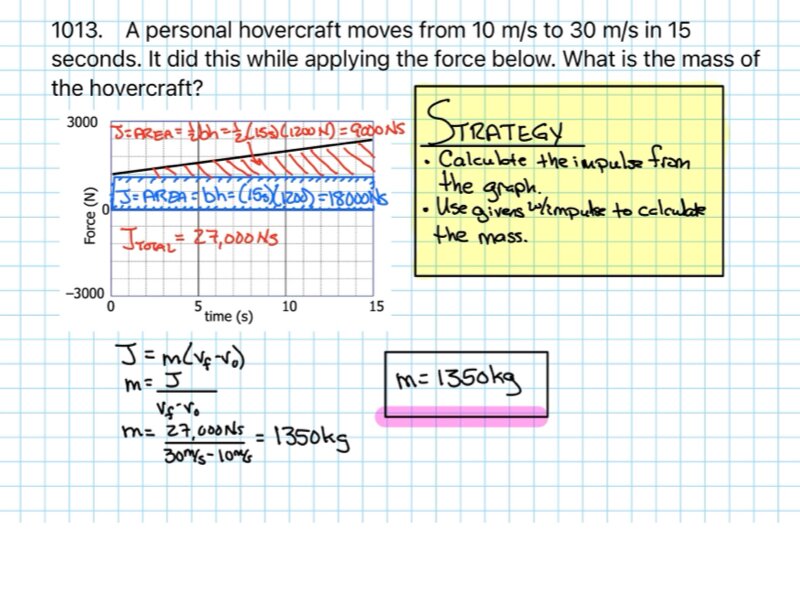 1013. A personal hovercraft moves from 10 m/s to 30 m/s in 15
seconds. It did this while applying the force below. What is the mass of
the hovercraft?
3000
J=AREA=½bh=½(15s)(1200N)=9000NS
J=AREA=bh=(15s)(1200)=18000NS
0
Force (N)
JTOTAL = 27,000NS
-3000
0
5
10
15
time (s)
STRATEGY
• Calculate the impulse from
the graph.
• Use givens w/impulse to calculate
the mass.
J = m(vf-v0)
m = J
vf-v0
m= 27,000NS = 1350kg
30m/s-10m/s
m= 1350kg